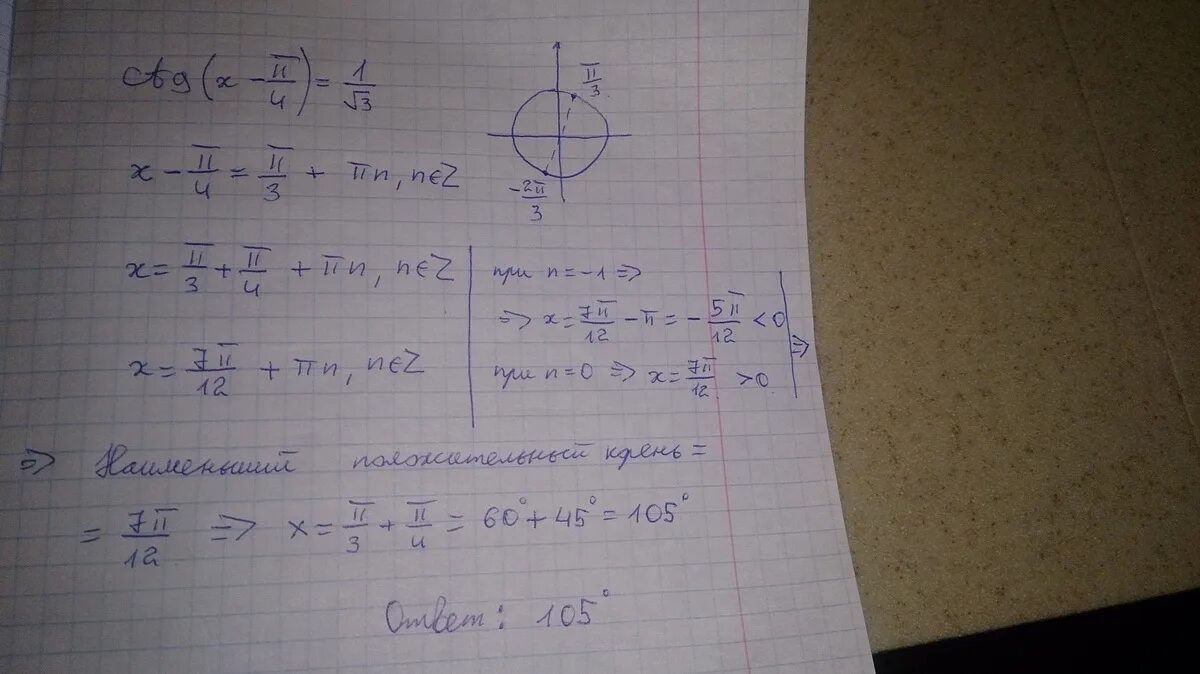 ctg(x - π/4) = 1/√3
π/3
x - π/4 = π/3 + πn, n∈Z
-2π/3
x = π/3 + π/4 + πn, n∈Z
x = 7π/12 + πn, n∈Z
при n = -1 ⇒
⇒ x = 7π/12 - π = - 5π/12 < 0
при n = 0 ⇒ x = 7π/12 > 0
⇒
⇒ Наименьший положительный корень =
= 7π/12 ⇒ x = π/3 + π/4 = 60° + 45° = 105°
Ответ: 105°